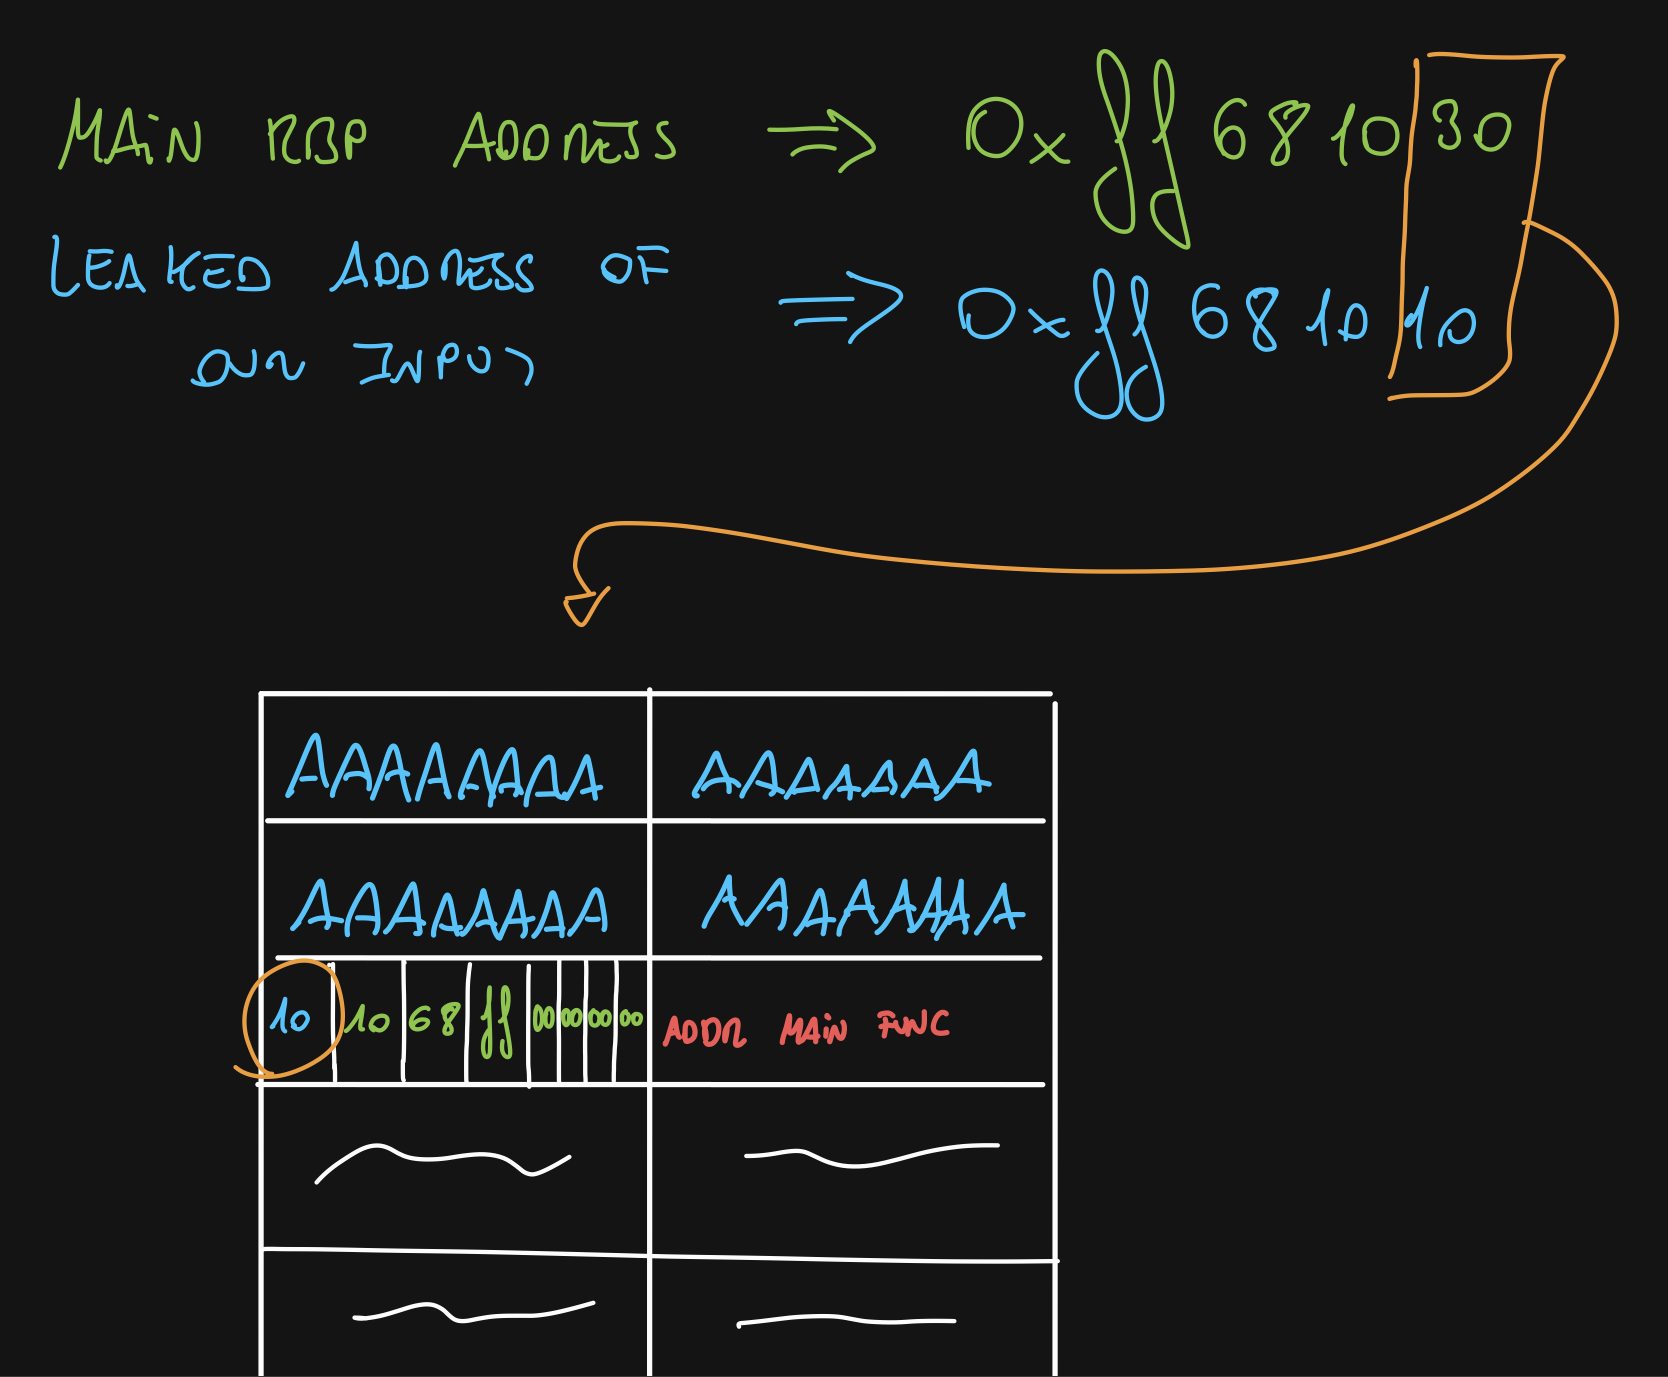 MAIN RBP ADDRESS ⇒ 0xff681030
LEAKED ADDRESS OF
OUR INPUT ⇒ 0xff681010
AAAAAAAA AAAAAAA
AAAAAAAA AAAAAAAA
10 10 68 ff 00 00 00 00 ADDR MAIN FUNC